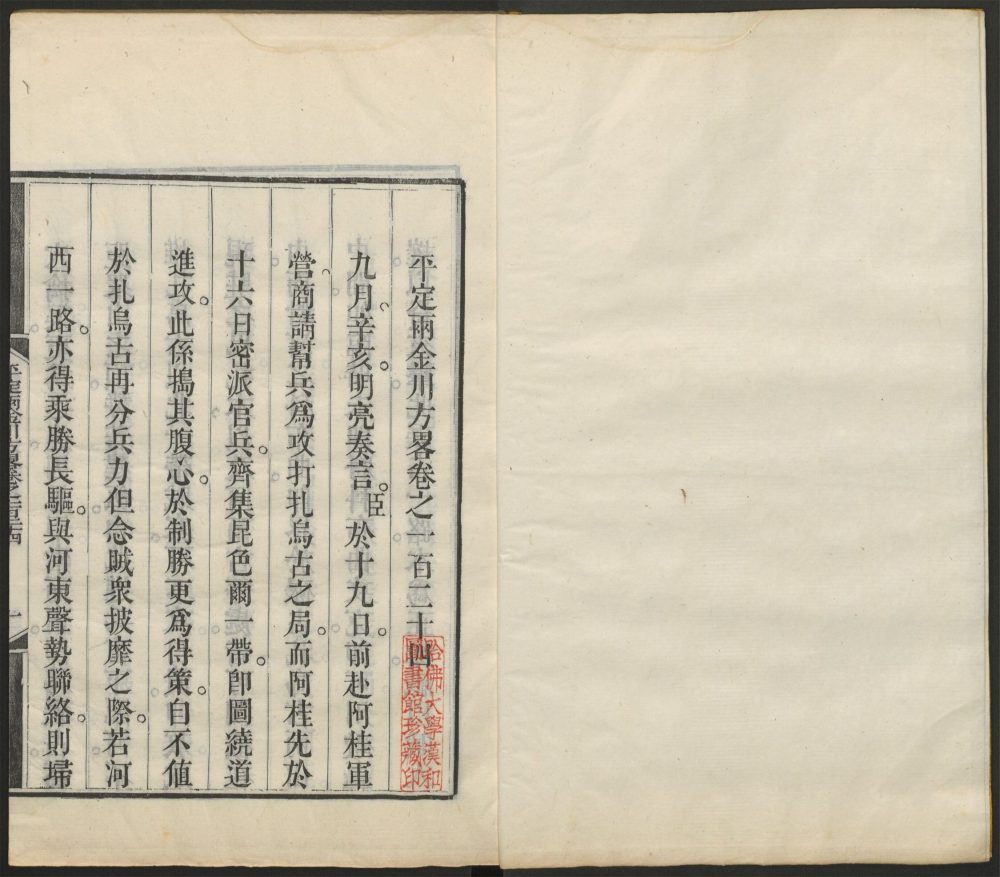 平定兩金川方畧卷之一百二十四
九月辛亥明亮奏言臣於十九日前赴阿桂軍
營商請幫兵爲攻打扎烏古之局而阿桂先於
十六日密派官兵齊集昆色爾一帶卽圖繞道
進攻此係搗其腹心於制勝更爲得策自不値
於扎烏古再分兵力但念賊衆披靡之際若河
西一路亦得乘勝長驅與河東聲勢聯絡則埽
平定兩金川方畧卷之一百二十四
一
哈佛大學漢和
圖書館珍藏印